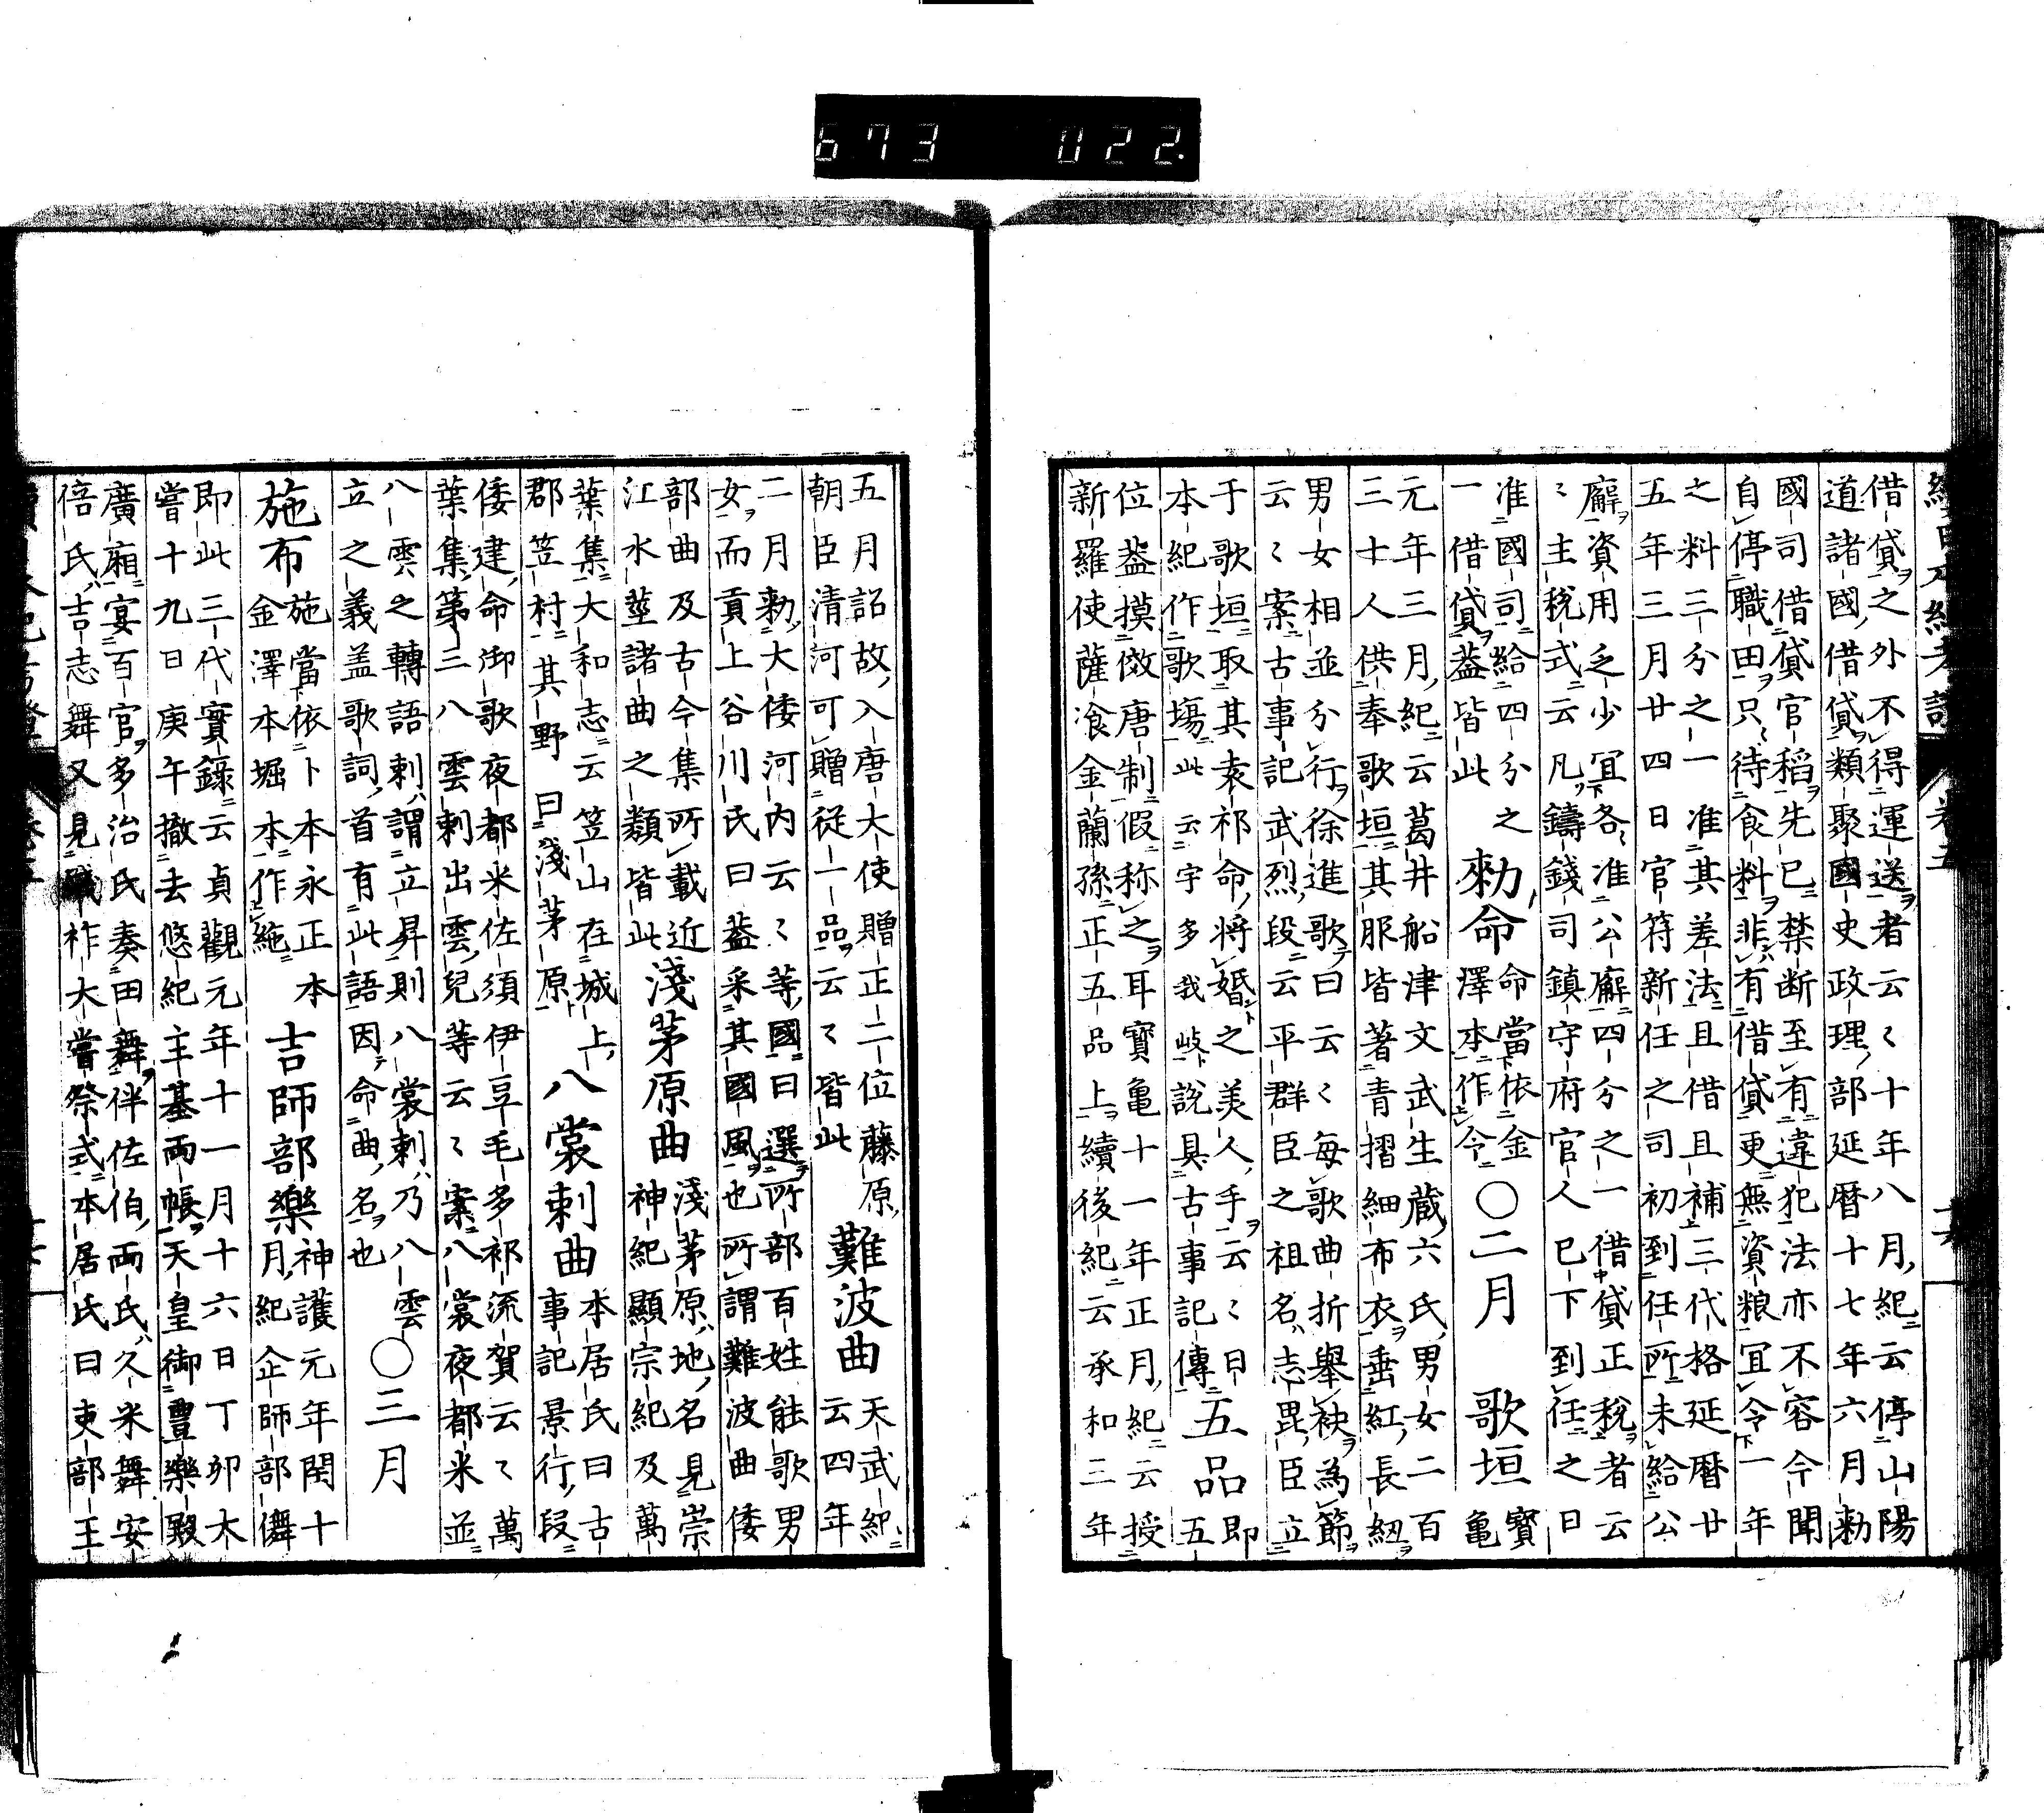 借貸之外不得運送者云々十年八月紀云停山陽
道諸國借貸類聚國史政理部延暦十七年六月勅
國司借貸官稻先已禁断至有違犯法亦不容今聞
自停職田只待食料非有借貸更無資粮冝令一年
之料三分之一准其差法且借且補三代格延暦廿
五年三月廿四日官符新任之司初到任所未給公
廨資用乏少冝各准公廨四分之一借貸正税者云
々主税式云凡鑄錢司鎮守府官人已下到任之日
准國司給四分之
一借貸蓋皆此
勅命
命當依金
澤本作令
○二月
歌垣
寳
亀
元年三月紀云葛井船津文武生蔵六氏男女二百
三十人供奉歌垣其服皆著青摺細布衣垂紅長紐
男女相並分行徐進歌曰云々毎歌曲折舉袂為節
云々案古事記武烈段云平群臣之祖名志毘臣立
于歌垣取其袁祁命将婚之美人手云々曰
本紀作歌場此云宇多我岐説具古事記傳
五品
即
五
位蓋摸倣唐制假称之耳寳亀十一年正月紀云授
新羅使薩飡金蘭孫正五品上續後紀云承和三年
五月詔故入唐大使贈正二位藤原
朝臣清河可贈従一品云々皆此
難波曲
天武紀
云四年
二月勅大倭河内云々等國曰選所部百姓能歌男
女而貢上谷川氏曰蓋采其國風也所謂難波曲倭
部曲及古今集所載近
江水莖諸曲之類皆此
淺茅原曲
淺茅原地名見崇
神紀顯宗紀及萬
葉集大和志云笠山在城上
郡笠村其野曰淺茅原
八裳刺曲
本居氏曰古
事記景行段
倭建命御歌夜都米佐須伊豆毛多祁流賀云々萬
葉集第三八雲刺出雲兒等云々案八裳夜都米並
八雲之轉語刺謂立昇則八裳刺乃八雲
立之義盖歌詞首有此語因命曲名也
○三月
施布
施當依卜本永正本
金澤本堀本作絁
吉師部樂
神護元年閏十
月紀企師部儛
即此三代實錄云貞觀元年十一月十六日丁卯大
嘗十九日庚午撤去悠紀主基兩帳天皇御豐樂殿
廣廂宴百官多治氏奏田舞伴佐伯兩氏久米舞安
倍氏吉志舞又見踐祚大嘗祭式本居氏曰吏部王